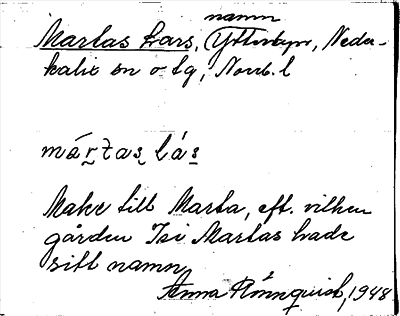 namn
Martas Lars, Ytterbyn, Neder-
kalix sn o tg, Norrb. l
má̱rtas lás
Make till Marta, eft. vilken
gården Isi Martas hade
sitt namn
Anna Rönnquist, 1948